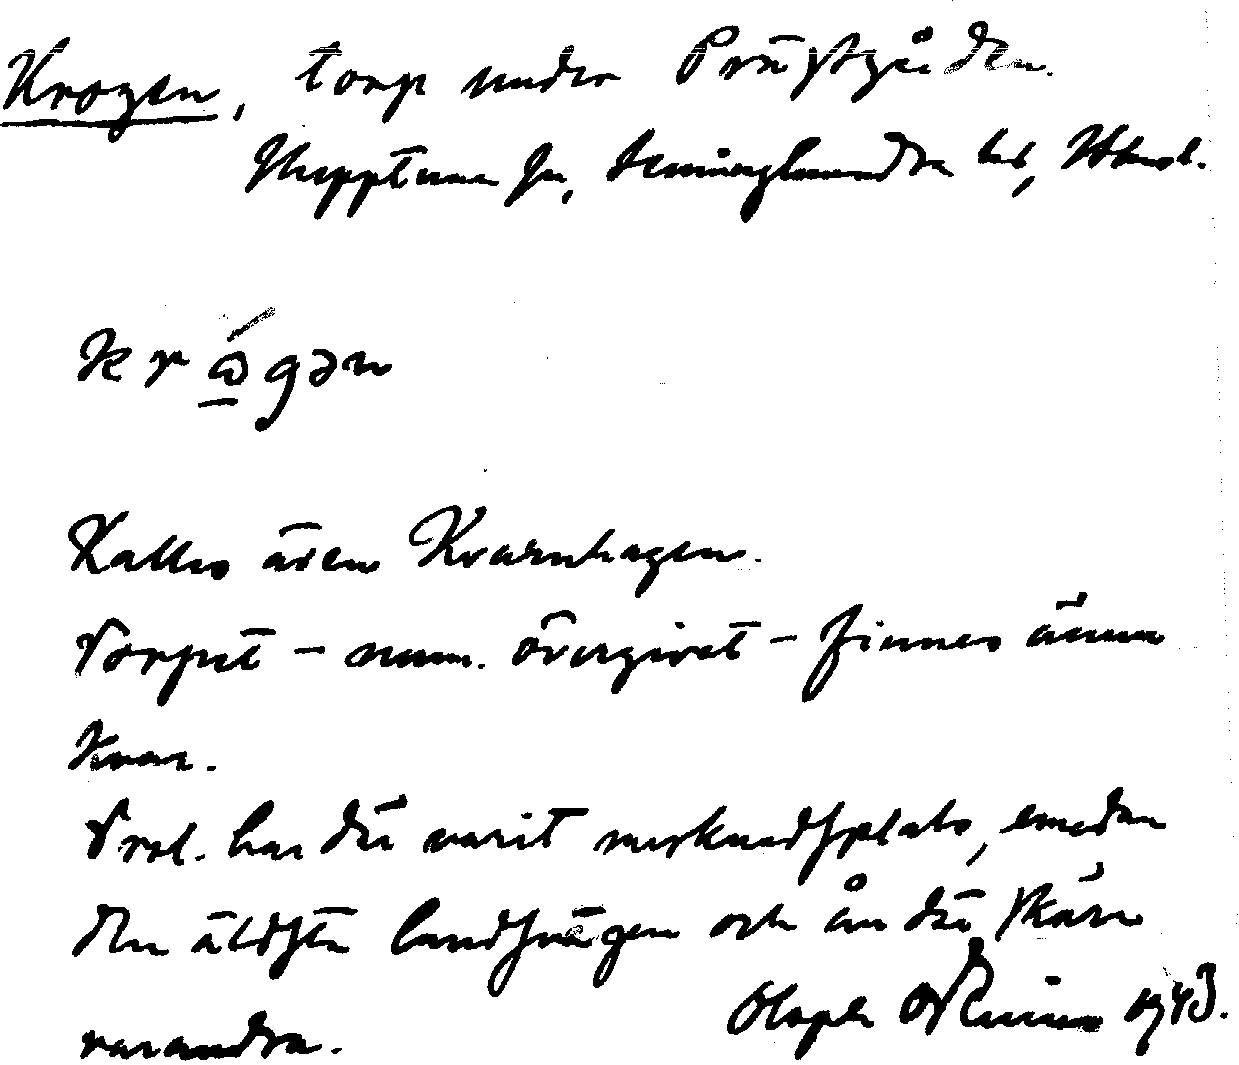 Krogen, torp under Prästgården.
Huppttuna sn, Seminghundra hd, Uppl.
krɷ́gən
Kallas även Kvarnhagen.
Torpet – num. övergivet – finnes ännu
kvar.
Trol. har där varit marknadsplats, emedan
den äldsta landsvägen och ån där skära
varandra.
1943.